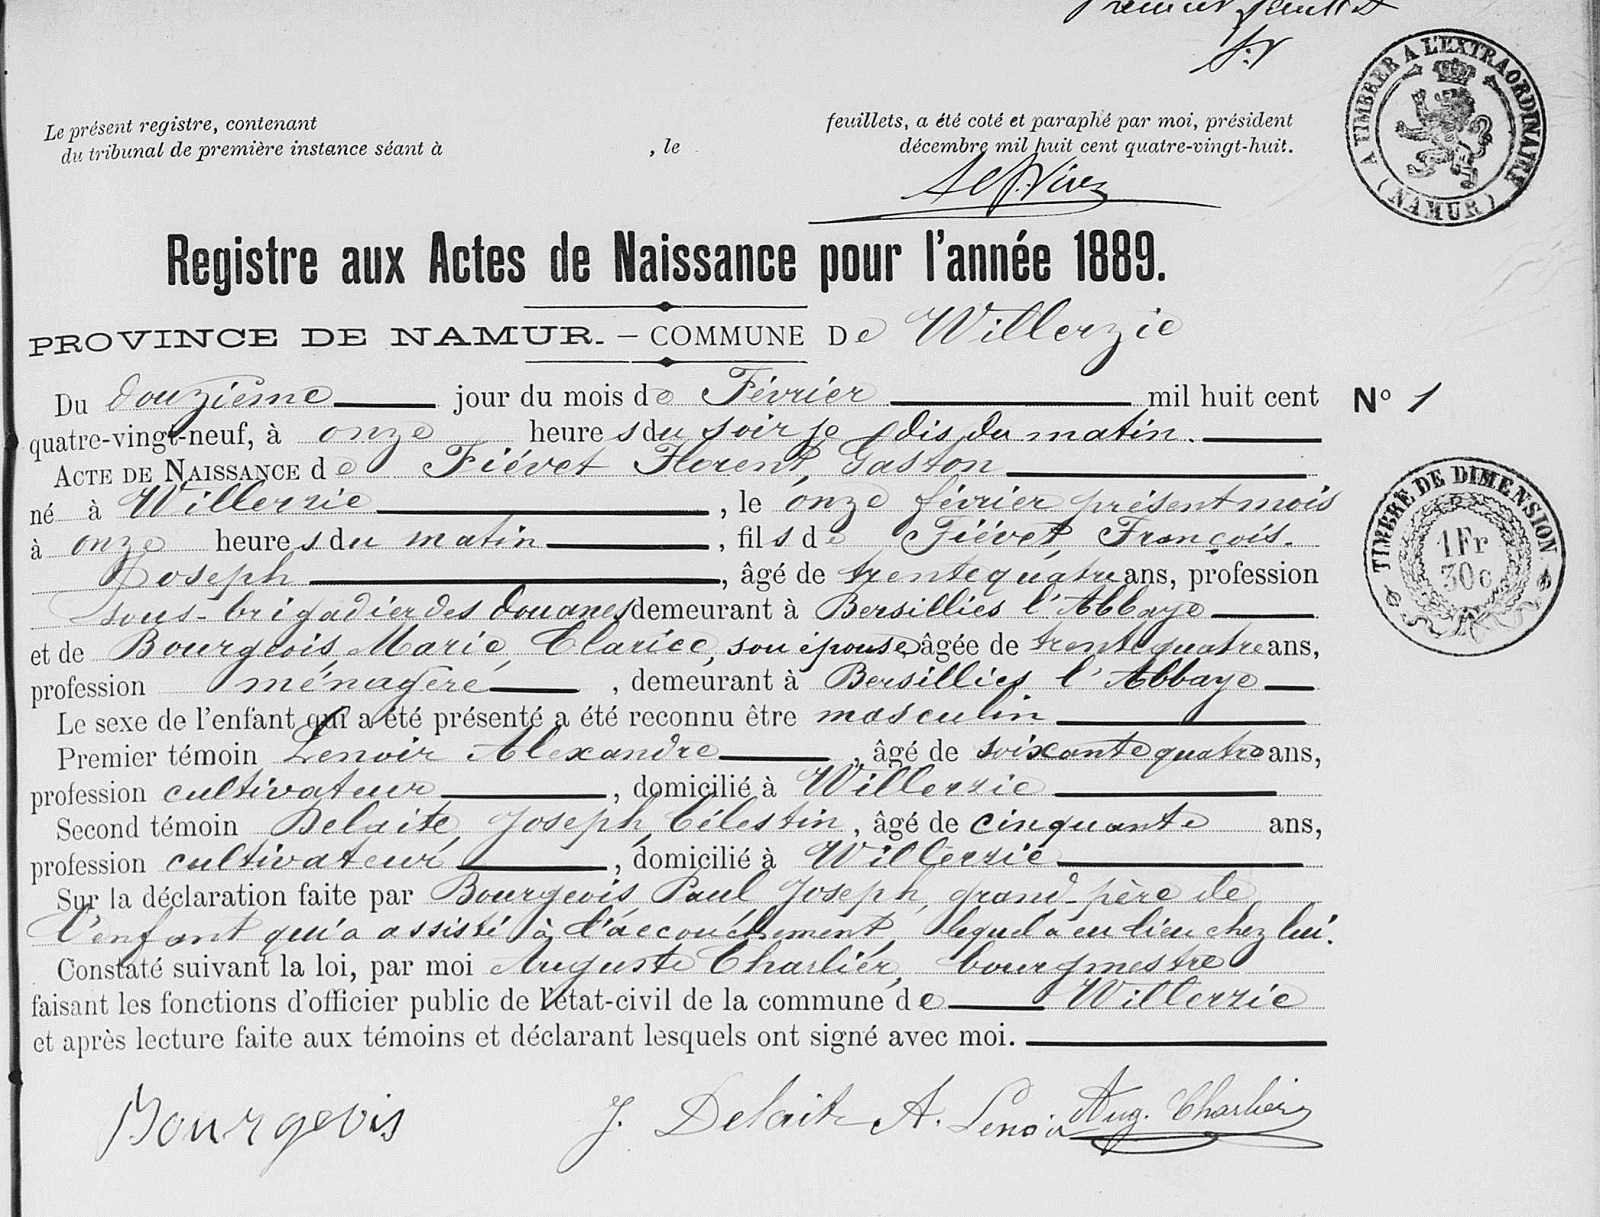 Premier feuillet
A TIMBRER A L'EXTRAORDINAIRE
(NAMUR)
Le présent registre, contenant feuillets, a été coté et paraphé par moi, président
du tribunal de première instance séant à , le décembre mil huit cent quatre-vingt-huit.
Registre aux Actes de Naissance pour l'année 1889.
PROVINCE DE NAMUR. – COMMUNE De Willerzie
Du douzième jour du mois de Février mil huit cent
N° 1
quatre-vingt-neuf, à onze heures du soir je dis du matin.
ACTE DE NAISSANCE de Fiévet Florent, Gaston
né à Willerzie , le onze février présent mois
à onze heures du matin , fils de Fiévet François.
Joseph , âgé de trente quatre ans, profession
sous-brigadier des douanes demeurant à Bersillies l'Abbaye
et de Bourgeois, Marie, Clarice, son épouse, âgée de trente quatre ans,
profession ménagère , demeurant à Bersillies l'Abbaye
Le sexe de l'enfant qui a été présenté a été reconnu être masculin
Premier témoin Lenoir Alexandre , âgé de soixante quatre ans,
profession cultivateur , domicilié à Willerzie
Second témoin Delaite, Joseph, Célestin , âgé de cinquante ans,
profession cultivateur , domicilié à Willerzie
Sur la déclaration faite par Bourgeois Paul Joseph, grand-père de
l'enfant qui a assisté à l'accouchement, lequel a eu lieu chez lui.
Constaté suivant la loi, par moi Auguste Charlier, bourgmestre
faisant les fonctions d'officier public de l'état-civil de la commune de Willerzie
et après lecture faite aux témoins et déclarant lesquels ont signé avec moi.
TIMBRE DE DIMENSION
1 Fr
30 c
Bourgeois J. Delaite A. Lenoir Aug. Charlier